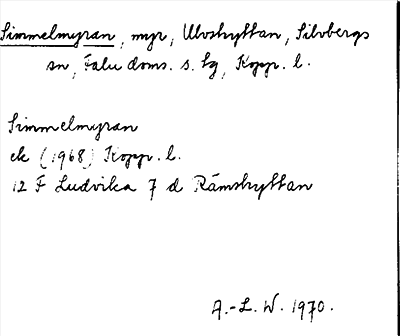 Simmelmyran, myr, Ulvshyttan, Silvbergs
sn, Falu doms. s. lg, Kopp. l.
Simmelmyran
ek (1968) Kopp. l.
12 F Ludvika 7 d Rämshyttan
A.-L. W. 1970.